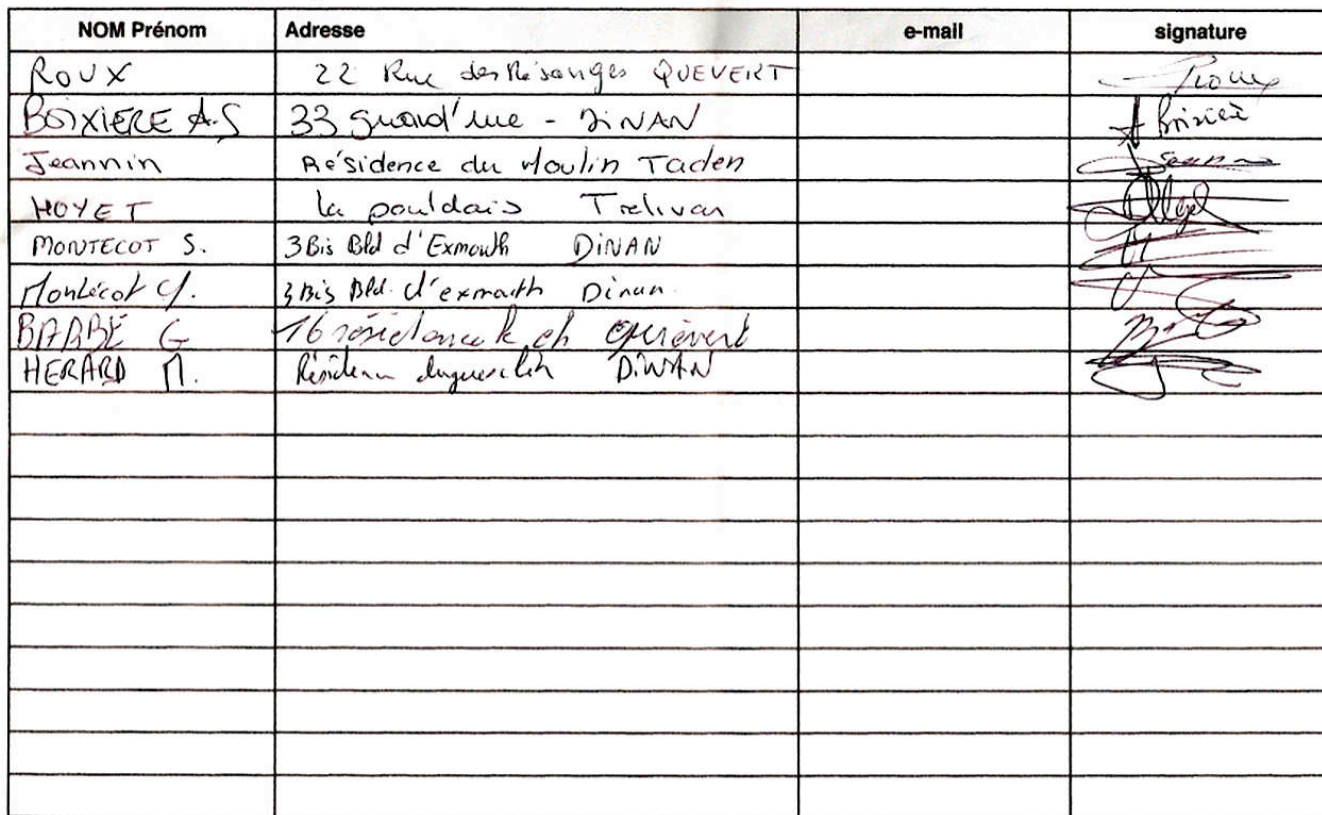 NOM Prénom Adresse e-mail signature
ROUX 22 Rue des Mésanges QUEVERT Roux
BOIXIERE A.S 33 grand'rue - DINAN
Jeannin Résidence du Moulin Taden
HOYET la pouldais Trelivan
MONTECOT S. 3Bis Bld d'Exmouth DINAN
Montécot 3 Bis Bld. d'exmouth Dinan
BARBÉ G 16 résidence quévert
HERARD M. Résidence duguesclin DINAN